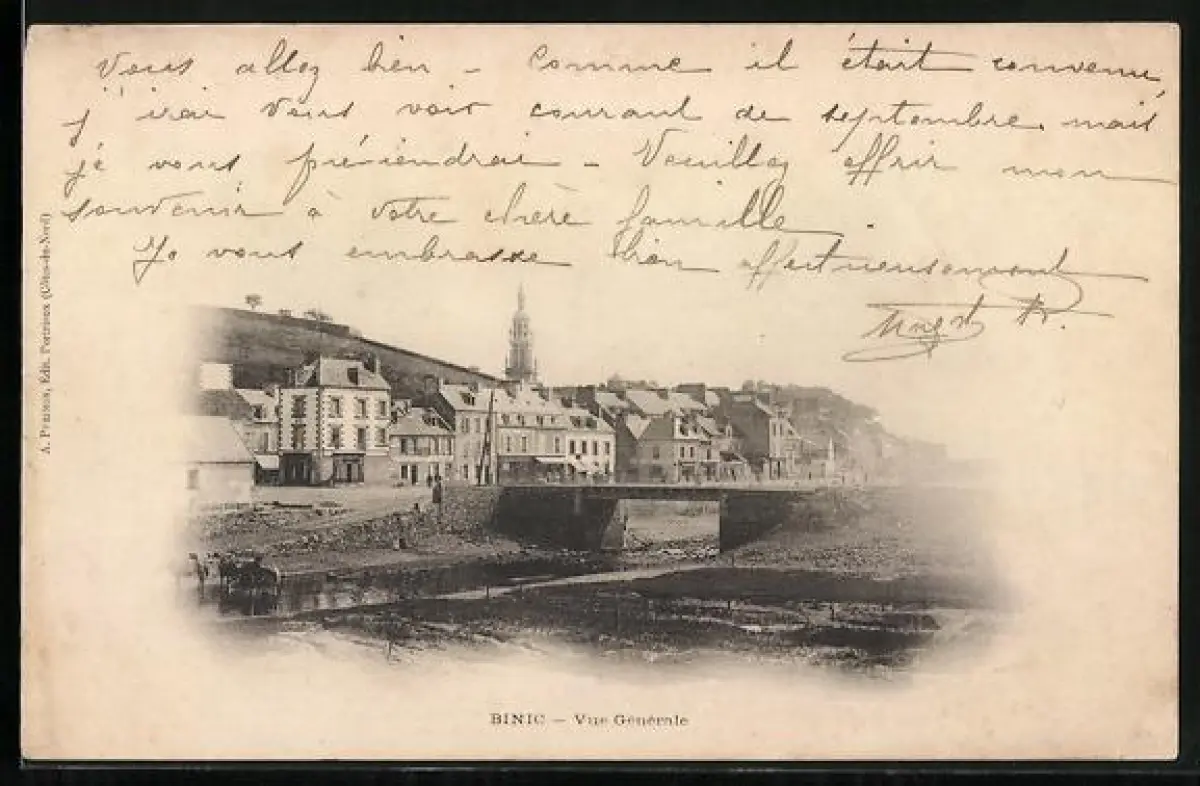 Vous allez bien - Comme il était convenu
j'irai vous voir courant de septembre, mais
je vous préviendrai - Veuillez offrir mon
souvenir à votre chère famille.
Je vous embrasse bien affectueusement
A. Perisse, Édit. Portrieux (Côtes-du-Nord)
BINIC - Vue Générale